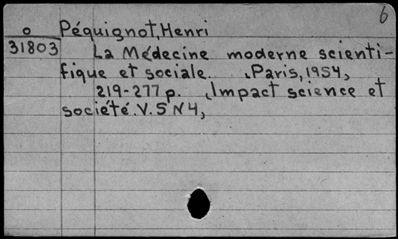 6
o Péquignot, Henri
31803 La Médecine moderne scienti-
fique et sociale. Paris, 1954,
219-277 p. Impact science et
société. V. 5 N 4,